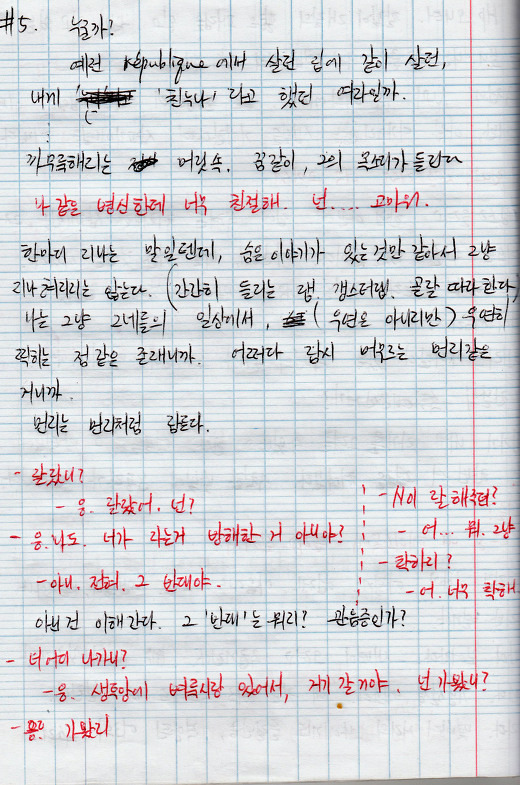 #5. 누굴까?
예전 République에서 살던 집에 같이 살던,
내게 '친누나'라고 했던 여자일까.
까무룩해지는 머릿속. 꿈같이, 그의 목소리가 들린다
나 같은 병신한테 너무 친절해. 넌.... 고마워.
한마디 지나는 말일텐데, 숨은 이야기가 있는것만 같아서 그냥
지나쳐지지는 않는다. (간간히 들리는 랩, 갱스터랩. 곧잘 따라한다)
나는 그냥 그네들의 일상에서, (우연은 아니지만) 우연히
찍히는 점같은 존재니까. 어쩌다 잠시 머무르는 먼지같은
거니까.
먼지는 먼지처럼 잠든다.
- 잘잤니?
- 응. 잘잤어. 넌?
- 응. 나도. 너가 자는거 방해한 거 아니야?
- 아니. 전혀. 그 반대야.
- N이 잘해줘?
- 어... 뭐. 그냥
- 착하지?
- 어. 너무 착해
아닌건 이해간다. 그 '반대'는 뭐지? 관음증인가?
- 너 어디 나가니?
- 응. 생토앙에 벼룩시장 있어서, 거기 갈거야. 넌 가봤니?
- 응. 가봤지